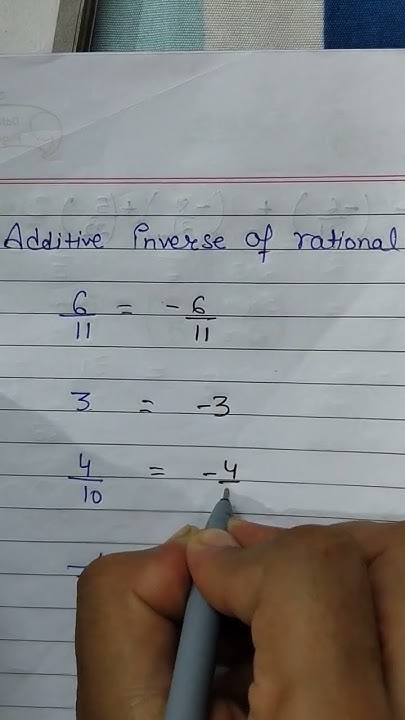 Additive Inverse of rational
6/11 = -6/11
3 = -3
4/10 = -4